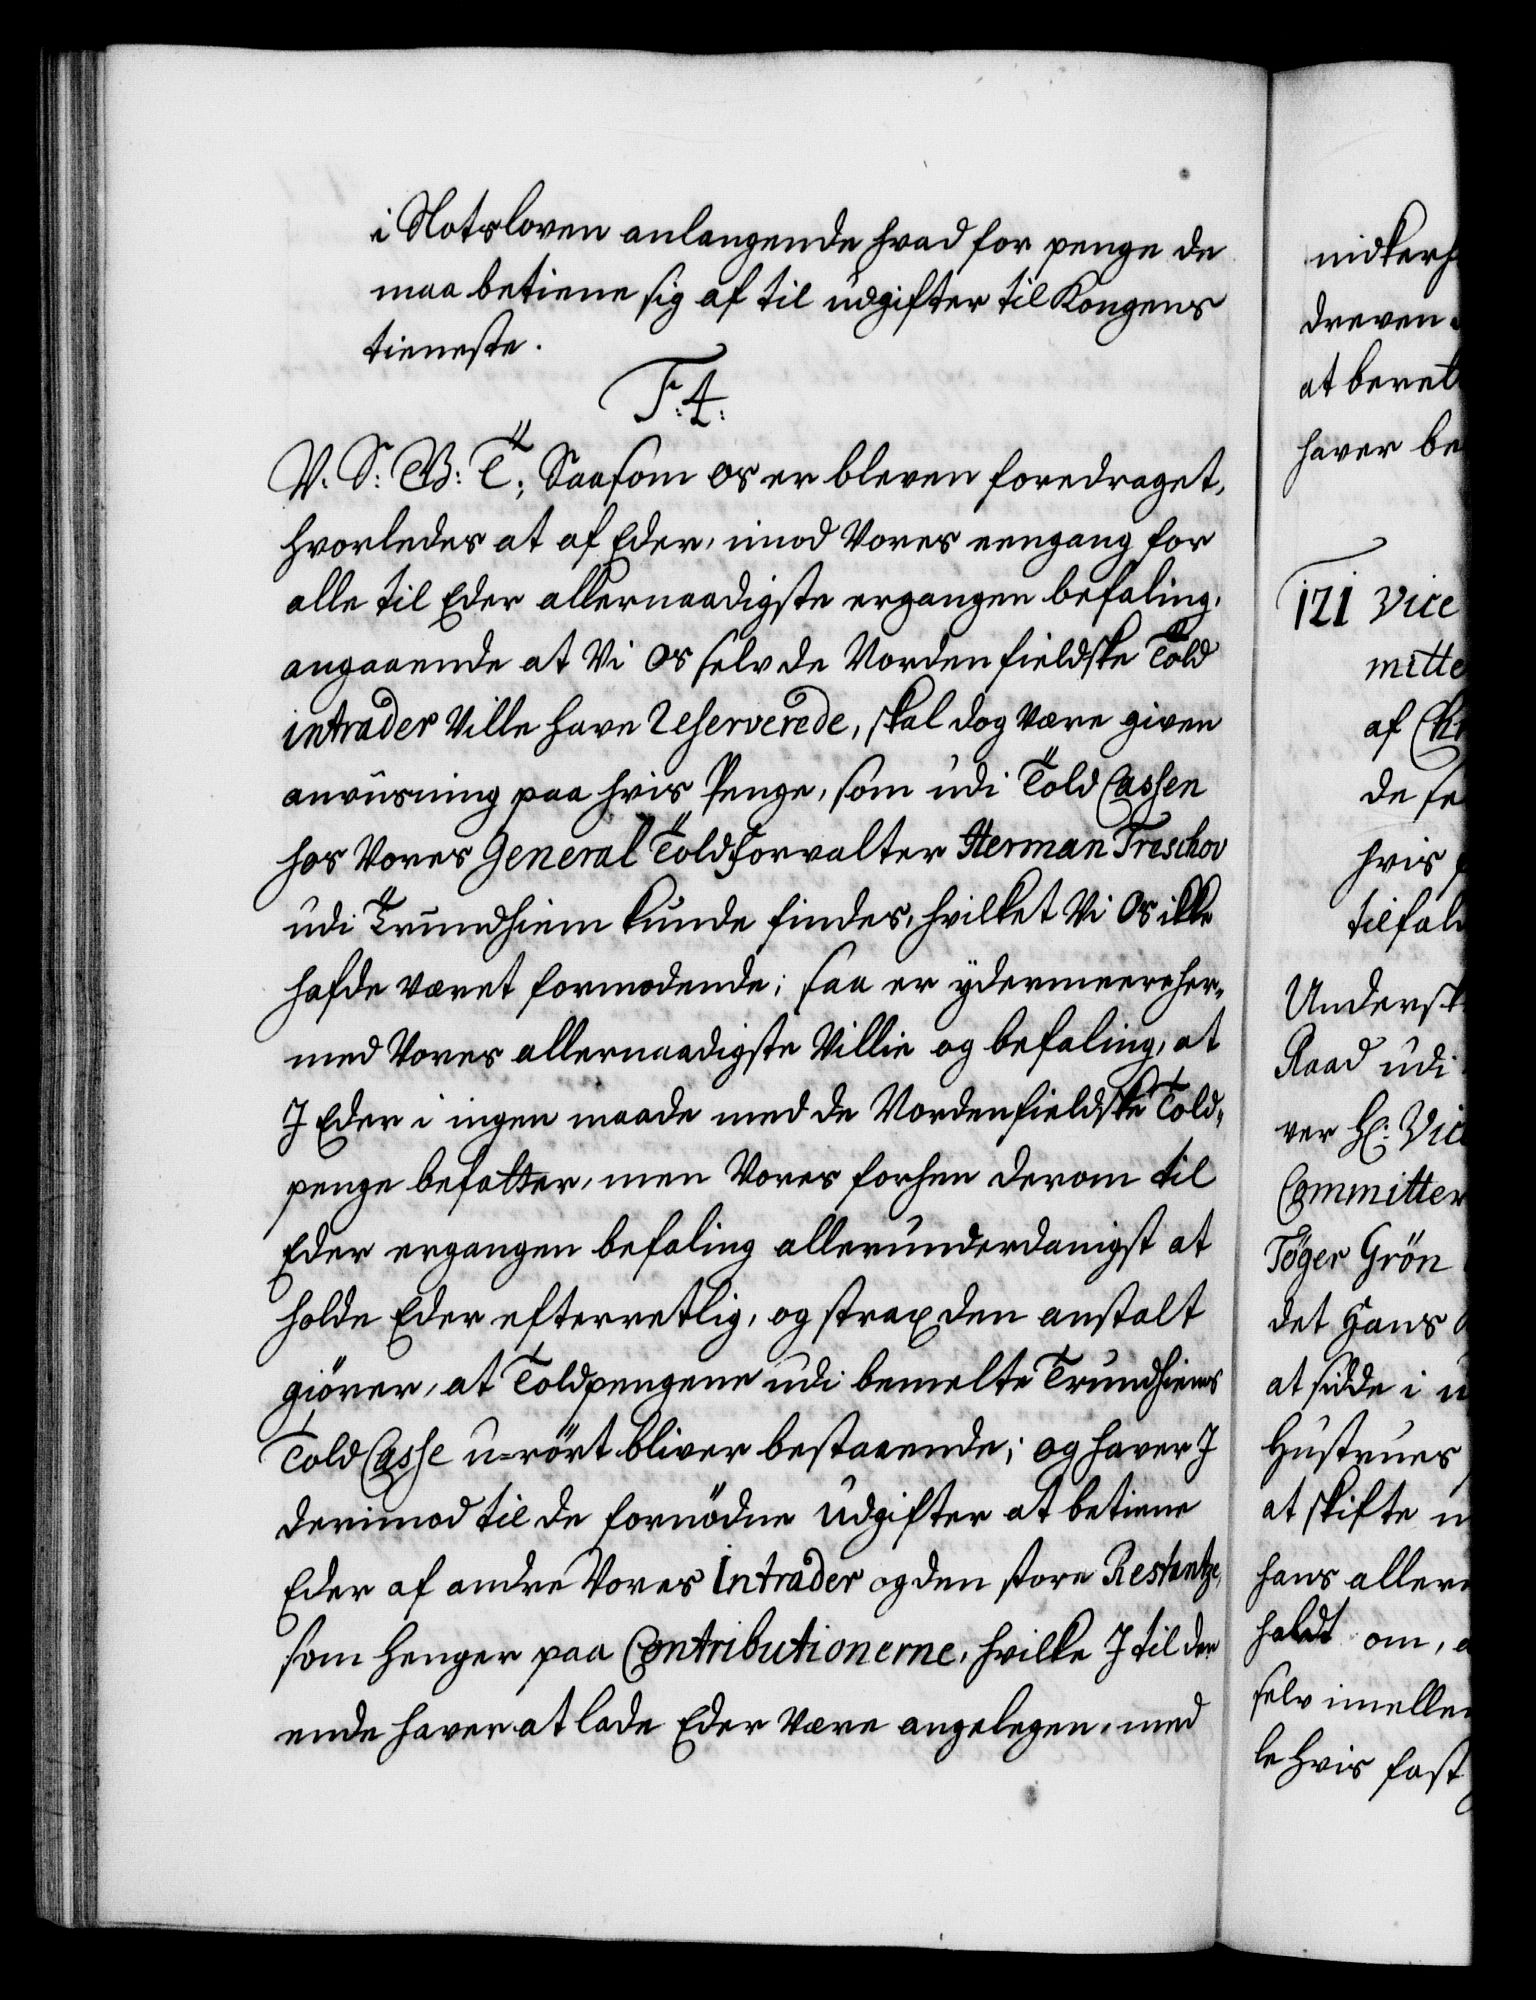 i Slotsloven anlangende hvad for penge de
maa betiene sig af til udgifter til Kongens
tieneste.
F: 4:
V. S: G: B: T; Saasom os er bleven foredraget,
hvorledes at af Eder, imod Vores eengang for
alle til Eder allernaadigste ergangen befaling,
angaaende at Vi os selv de Nordenfieldske Told
intrader Ville have Reserverede, skal dog være given
anviisning paa hvis Penge, som udi Told Cassen
hos Vores General Toldforvalter Herman Treschov
udi Trundhiem kunde findes, hvilket Vi Os ikke
hafde været formodende; saa er ydermeere her-
med Vores allernaadigste Villie og befaling, at
I Eder i ingen maade med de Nordenfieldske Told-
penge befatter, men Vores forhen derom til
Eder ergangen befaling allerunderdanigst at
holde Eder efterretlig, og strax den anstalt
giörer, at Toldpengene udi bemelte Trundhiems
Told Casse u-rört bliver bestaaende; og haver I
derimod til de fornödne Udgifter at betiene
Eder af andre Vores Intrader og den store Restantze,
som henger paa Contributionerne, hvilke I til den
ende haver at lade Eder være angelegen, med
nidkerh
dreven
at beret
haver be
121 Vice
mitte
af Chr
de se
hvis
tilfald
Undersk
Raad udi
ver H: Vice
Committer
Töger Grön
det Hans
at sidde i u
Hustrues
at skifte m
hans aller
holdt om, a
selv imellem
le hvis fast